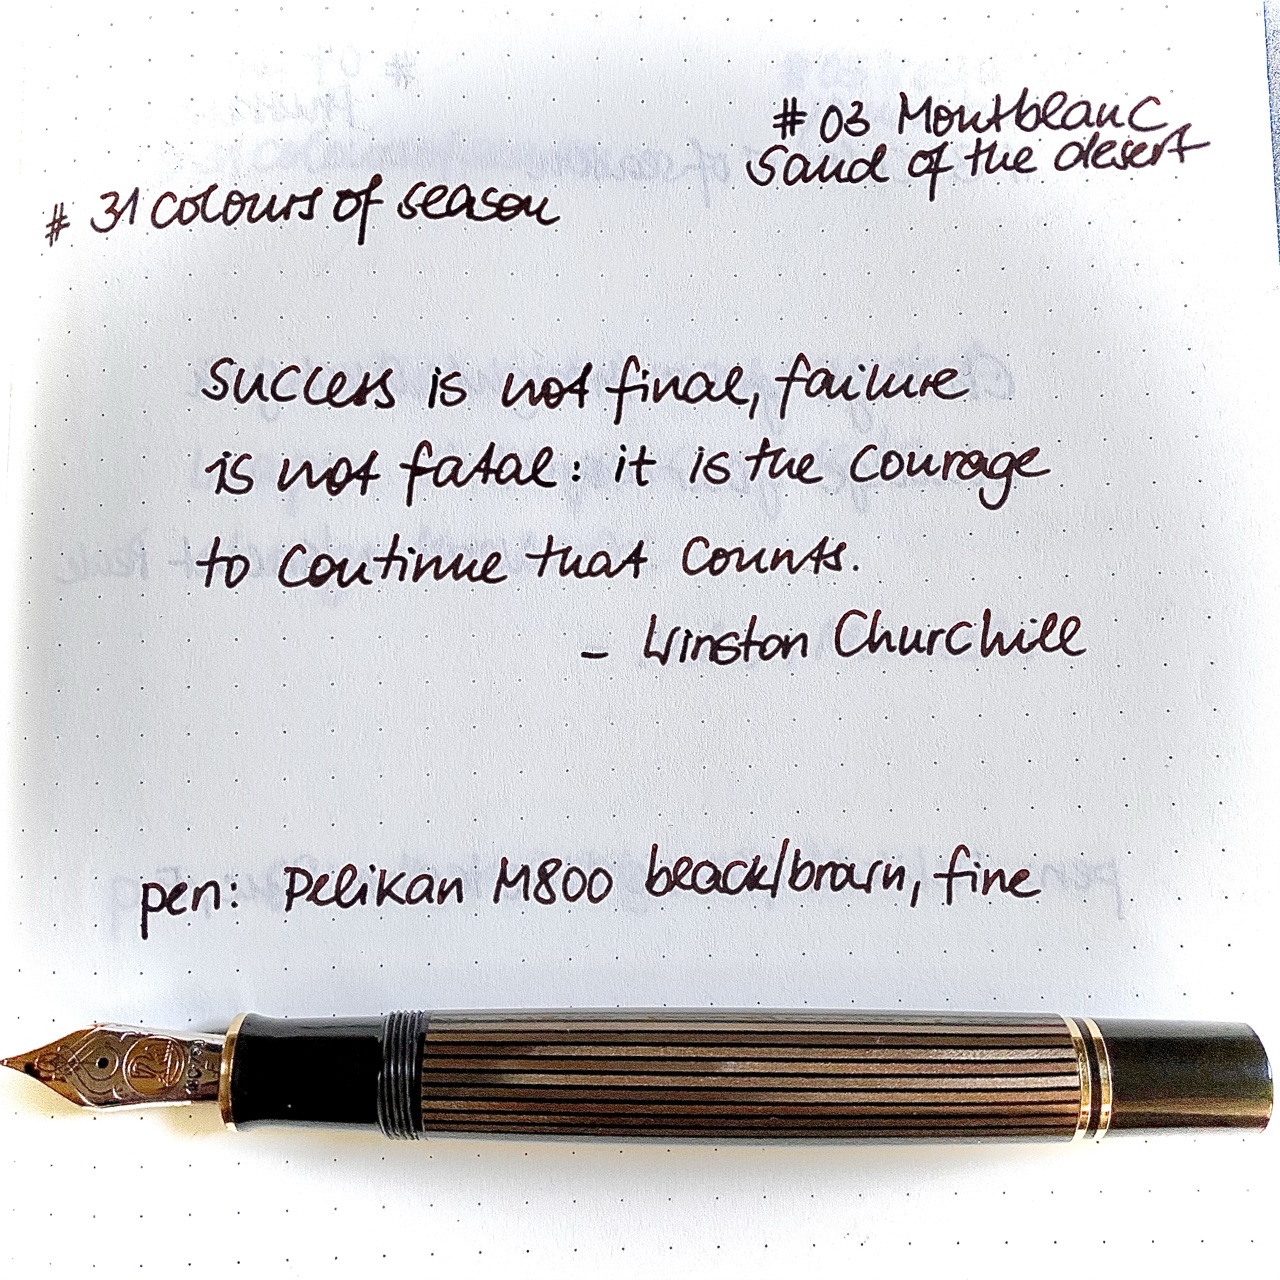 # 03 Montblanc
Sand of the desert
# 31 colours of season
Success is not final, failure
is not fatal: it is the courage
to continue that counts.
- Winston Churchill
pen: Pelikan M800 black/brown, fine